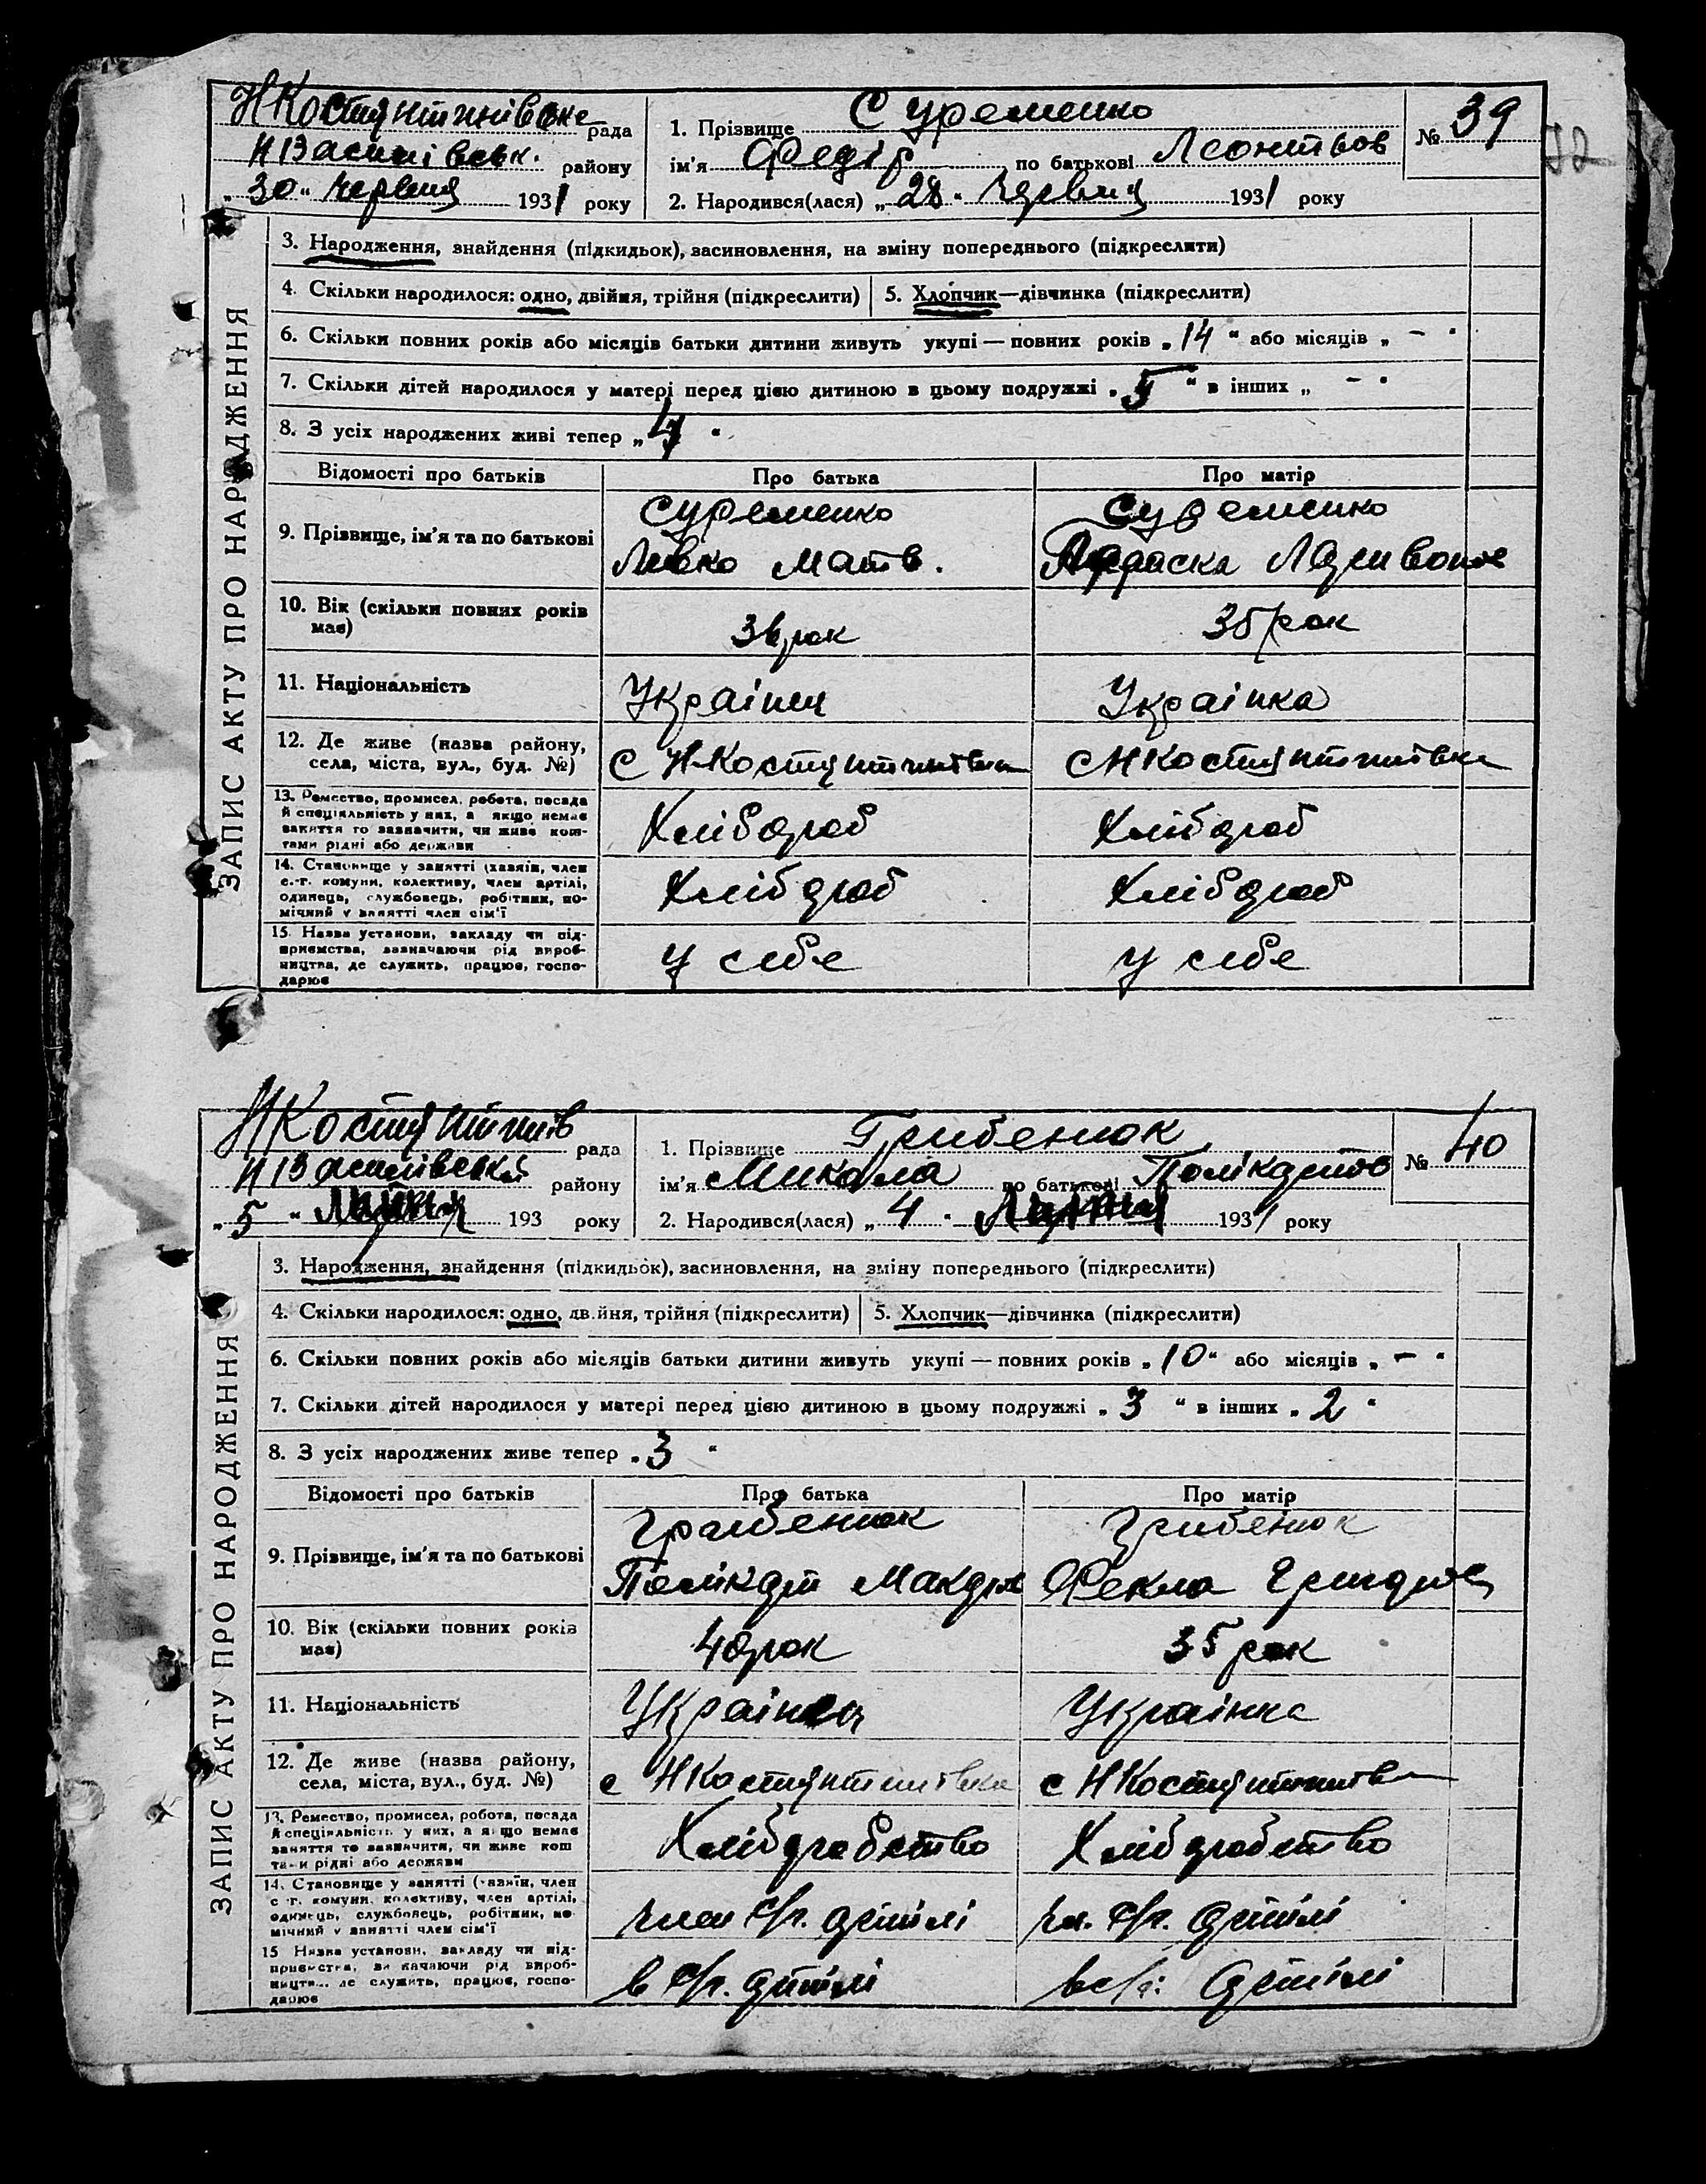 НКостянтинівське рада
НВасилівськ. району
„30“ червня 1931 року
1. Прізвище Суременко
ім'я Федір по батькові Леонтьов
2. Народився(лася) „28“ червня 1931 року
№ 39
ЗАПИС АКТУ ПРО НАРОДЖЕННЯ
3. Народження, знайдення (підкидьок), засиновлення, на зміну попереднього (підкреслити)
4. Скільки народилося: одно, двійня, трійня (підкреслити)
5. Хлопчик—дівчинка (підкреслити)
6. Скільки повних років або місяців батьки дитини живуть укупі — повних років „14“ або місяців „–“
7. Скільки дітей народилося у матері перед цією дитиною в цьому подружжі „5“ в інших „–“
8. З усіх народжених живі тепер „4“
Відомості про батьків
Про батька
Про матір
9. Прізвище, ім'я та по батькові
Суременко
Левко Матв.
Суременко
Параска
10. Вік (скільки повних років
має)
рок
35 рок
11. Національність
Українец
Українка
12. Де живе (назва району,
села, міста, вул., буд. №)
с Н-Костянтинівка
с НКостянтинівка
13. Ремество, промисел, робота, посада
й спеціяльність у них, а якщо немає
заняття то зазначити, чи живе кош-
тами рідні або держави
Хлібороб
Хлібороб
14. Становище у занятті (хазяїн, член
с.-г. комуни, колективу, член артілі,
одинець, службовець, робітник, по-
мічний у занятті член сім'ї
Хлібороб
Хлібороб
15. Назва установи, закладу чи під-
приємства, зазначаючи рід вироб-
ництва, де служить, працює, госпо-
дарює
у себе
у себе
НКостянтинів рада
НВасилівської району
„5“ Липня 193 року
1. Прізвище Грибенюк
ім'я Микола по батькові Полікартов
2. Народився(лася) „4“ Липня 1931 року
№ 40
ЗАПИС АКТУ ПРО НАРОДЖЕННЯ
3. Народження, знайдення (підкидьок), засиновлення, на зміну попереднього (підкреслити)
4. Скільки народилося: одно, двійня, трійня (підкреслити)
5. Хлопчик—дівчинка (підкреслити)
6. Скільки повних років або місяців батьки дитини живуть укупі — повних років „10“ або місяців „–“
7. Скільки дітей народилося у матері перед цією дитиною в цьому подружжі „3“ в інших „2“
8. З усіх народжених живе тепер „3“
Відомості про батьків
Про батька
Про матір
9. Прізвище, ім'я та по батькові
Грибенюк
Полікарт Макаров
Грибенюк
Фекла Григоров
10. Вік (скільки повних років
має)
40 рок
35 рок
11. Національність
Українец
Українка
12. Де живе (назва району,
села, міста, вул., буд. №)
с НКостянтинівка
с НКостянтинівка
13. Ремество, промисел, робота, посада
й спеціяльність у них, а якщо немає
заняття то зазначити, чи живе кош
тами рідні або держави
Хліборобство
Хліборобство
14. Становище у занятті (хазяїн, член
с.-г. комуни, колективу, член артілі,
одинець, службовець, робітник, по
мічний у занятті член сім'ї
член с/г. артілі
чл. с/г. артілі
15 Назва установи, закладу чи під-
приємства, зазначаючи рід вироб-
ництва, де служить, працює, госпо-
дарює
в с/г. артілі
в с/г. артілі